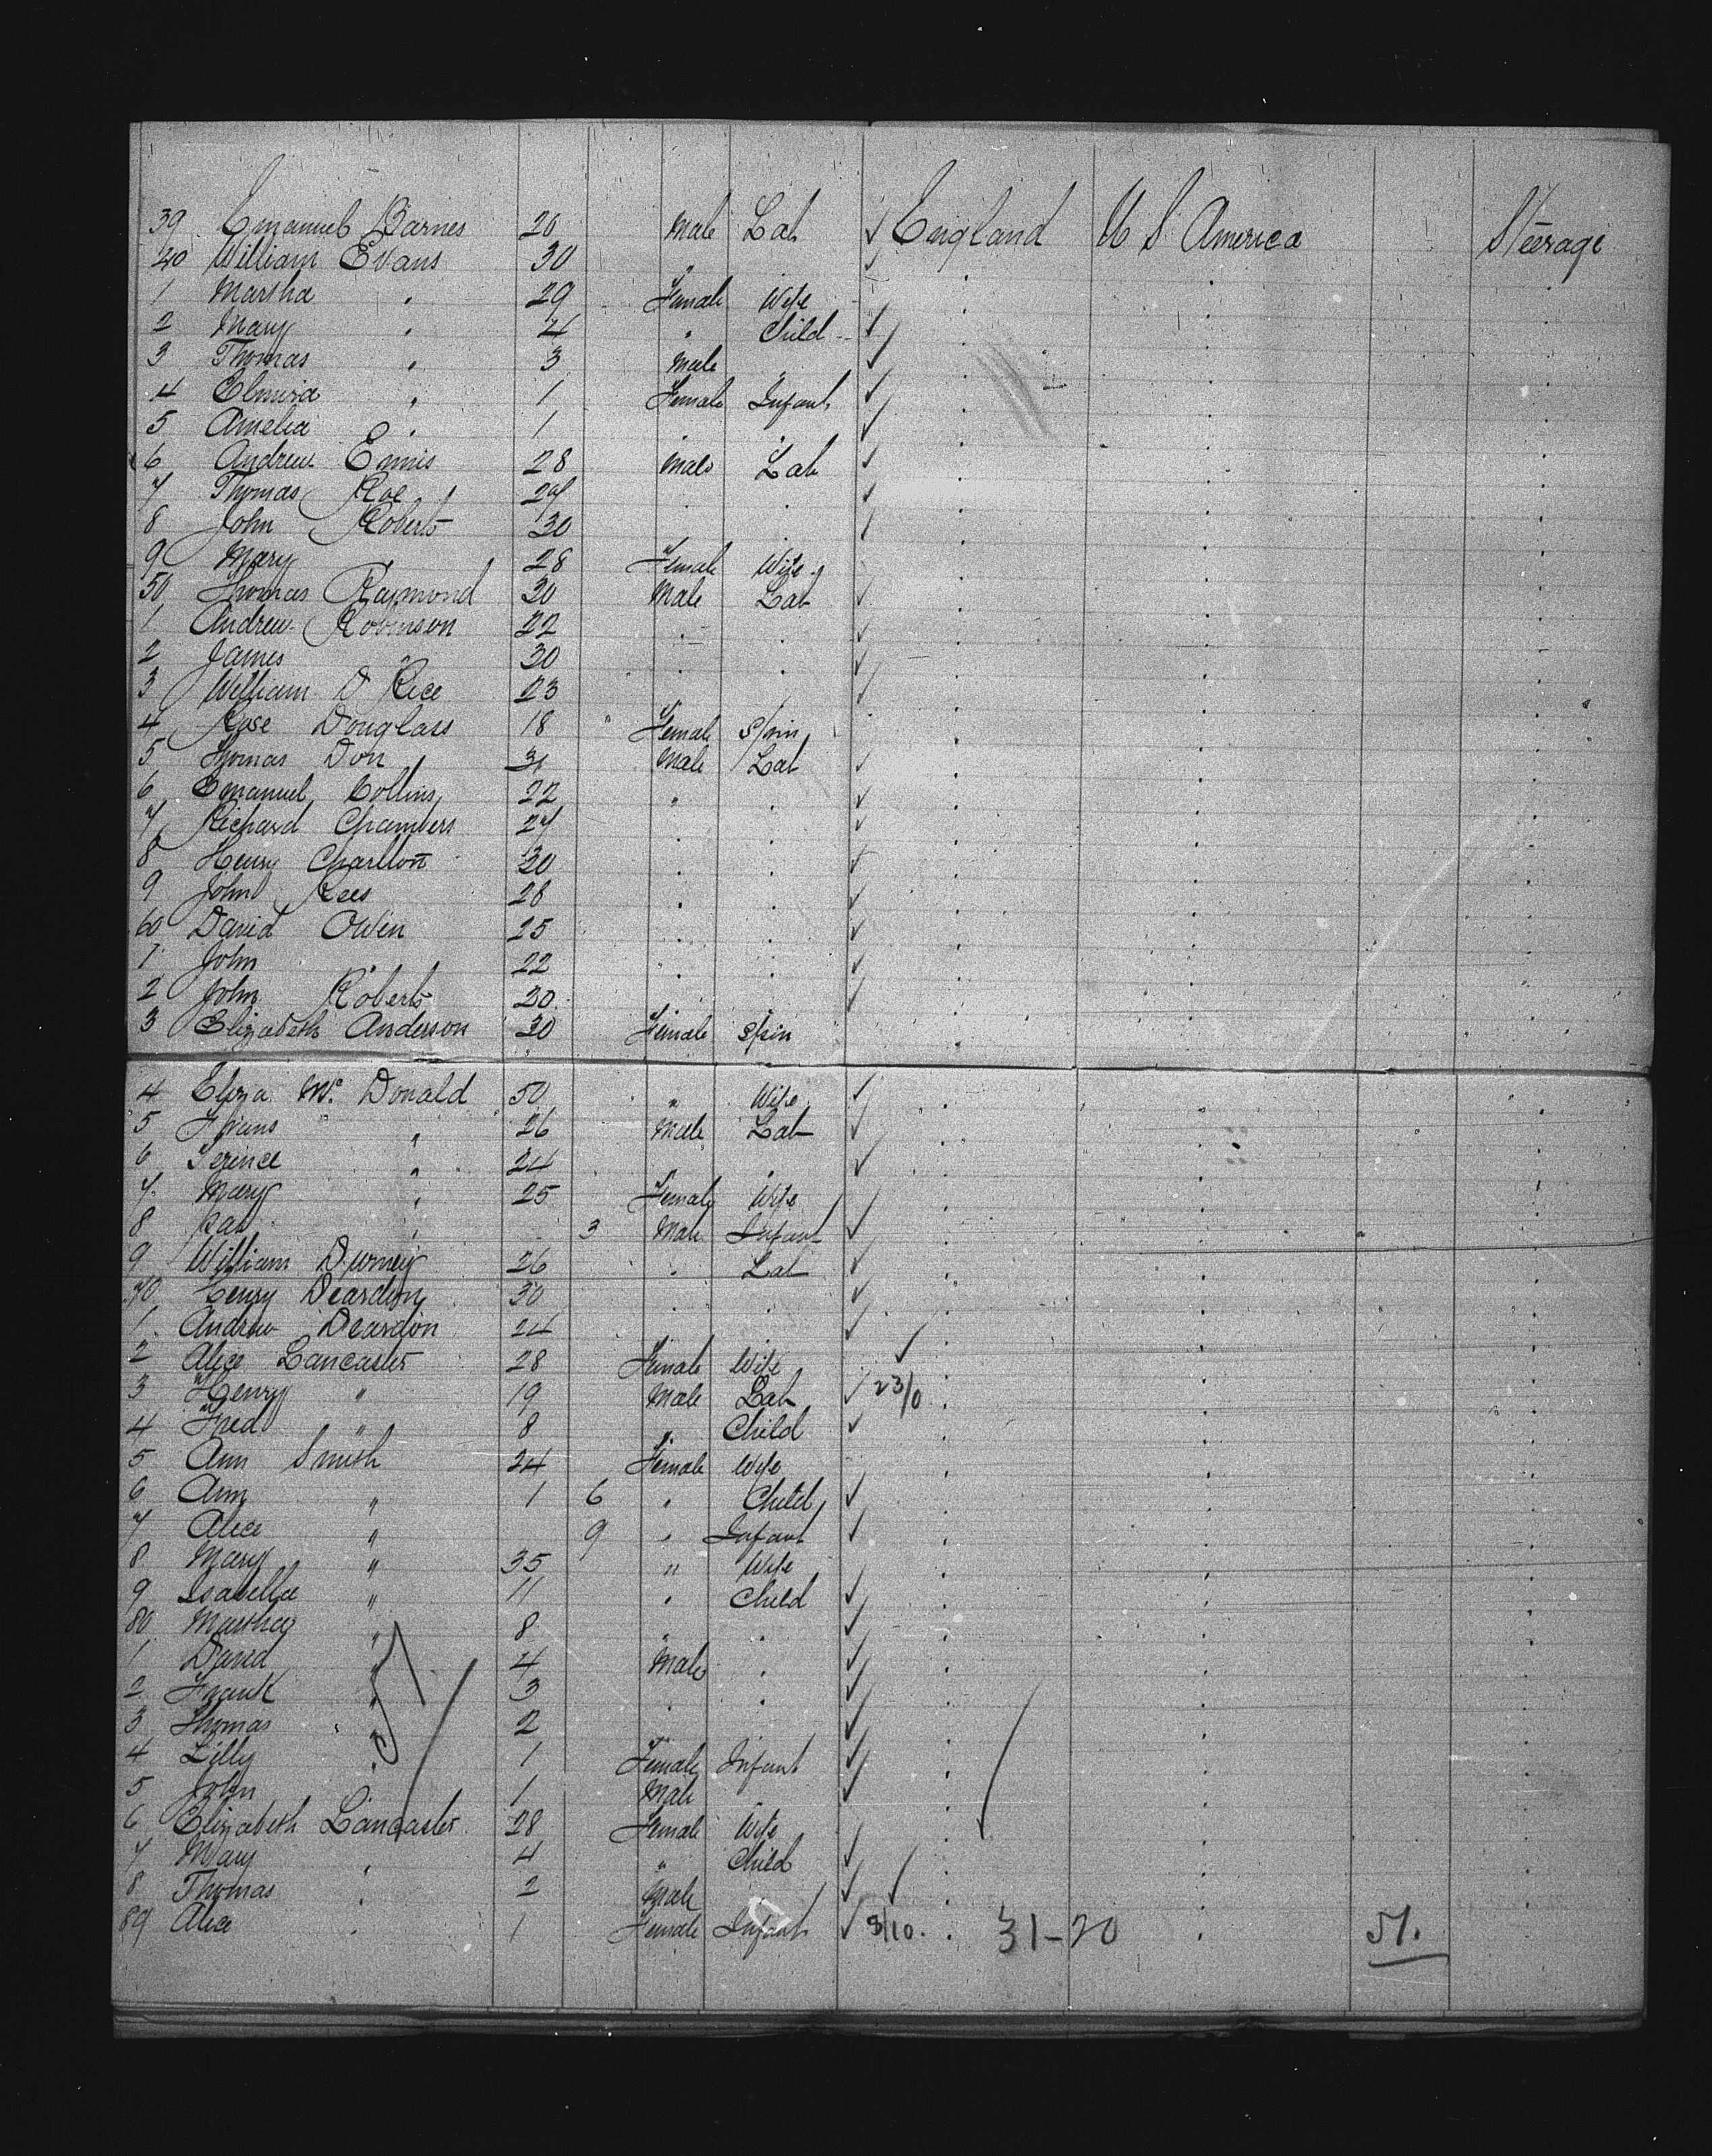 39 Emanuel Barnes 20 Male Lab ✓ England U S America Steerage
40 William Evans 30 " ✓
1 Martha " 29 Female Wife
2 Mary " 4 " Child ✓
3 Thomas " 3 Male " ✓
4 Elmira " 1 Female Infant ✓
5 Amelia " 1 " " ✓
6 Andrew Ennis 28 Male Lab ✓
7 Thomas Roe 27 " " ✓
8 John Roberts 30 " " ✓
9 Mary 28 Female Wife
50 Thomas Raymond 30 Male Lab ✓
1 Andrew Robinson 22 " " ✓
2 James " 30 " " ✓
3 William D Rice 23 " " ✓
4 Rose Douglass 18 " Female Spin
5 Thomas Don Male Lab ✓
6 Emanuel Collins 22 " " ✓
7 Richard Chambers 27 " " ✓
8 Henry Charlton 20 " " ✓
9 John Rees 28 " " ✓
60 David Owen 25 " " ✓
1 John " 22 " " ✓
2 John Roberts 20 " " ✓
3 Elizabeth Anderson 30 Female Spin
4 Eliza Mc Donald 50 " Wife ✓
5 " 26 Male Lab ✓
6 Terence " 24 " " ✓
7 Mary " 25 Female Wife
8 Pat " 3 Male Infant ✓
9 William Durney 26 " Lab ✓
70 Henry Deardon 30 " " ✓
1 Andrew Deardon 24 " " ✓
2 Alice Lancaster 28 Female Wife ✓
3 Henry " 19 Male Lab ✓ 23/0
4 Fred " 8 " Child ✓
5 Ann Smith 24 Female Wife
6 Ann " 1 6 " Child ✓
7 Alice " 9 " Infant ✓
8 Mary " 35 " Wife
9 Isabella " 11 " Child ✓
80 Martha " 8 " " ✓
1 David " 4 Male " ✓
2 Frank " 3 " " ✓
3 Thomas " 2 " " ✓
4 Lilly " 1 Female Infant ✓
5 John " 1 Male " ✓
6 Elizabeth Lancaster 28 Female Wife
7 Mary " 4 " Child ✓
8 Thomas " 2 Male " ✓ ✓
89 Alice " 1 Female Infant ✓ 8/10. 31-20 51.